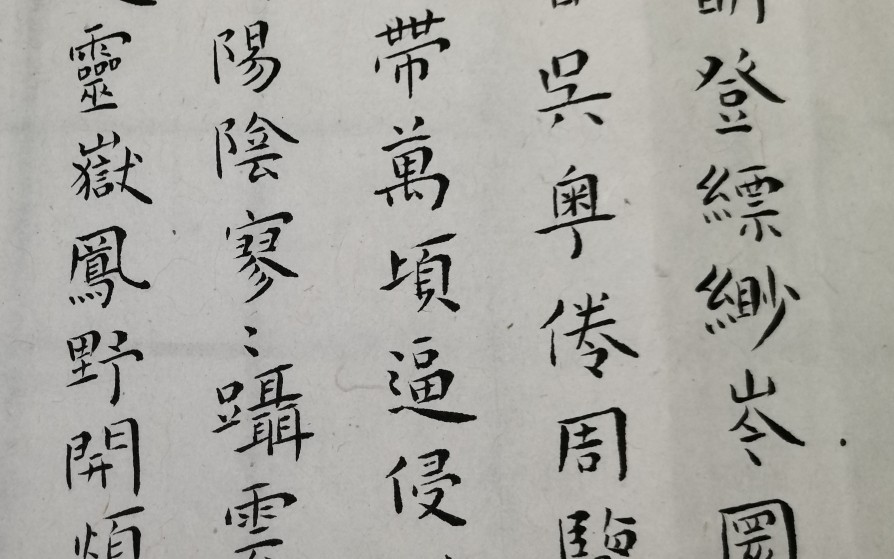 登縹緲岑圌
吳粵倦周
帶萬頃逼侵
陽陰寥〻躡雲
靈嶽鳳野開頻